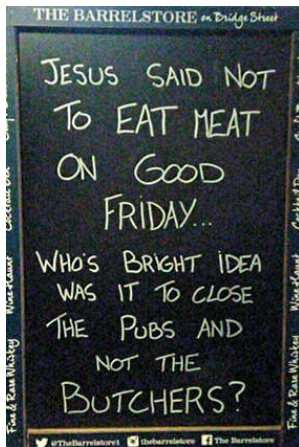 THE BARRELSTORE on Bridge Street
JESUS SAID NOT
TO EAT MEAT
ON GOOD
FRIDAY...
WHO'S BRIGHT IDEA
WAS IT TO CLOSE
THE PUBS AND
NOT THE
BUTCHERS?
Wine Haunt
Fine & Rare Whiskey
Wine Haunt
Fine & Rare Whiskey
@TheBarrelstore1 thebarrelstore The Barrelstore